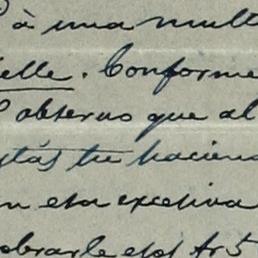 à una mult
elle. Conforme
observo que al
estás tu hacien
en esa excesiva
obrarle esos